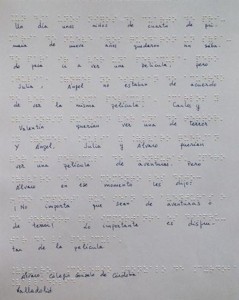 Un día unos niños de cuarto de pri-
maria de nueve años quedaron un sába-
do para ir a ver una película; pero
Julia y Ángel no estaban de acuerdo
de ver la misma película. Carlos y
Valentín querían ver una de terror
y Ángel, Julia y Álvaro querían
ver una película de aventuras. Pero
Álvaro en ese momento les dijo:
¡No importa que sean de aventuras o
de terror! Lo importante es disfru-
tar de la película.
Álvaro. Colegio Gonzalo de Córdoba
Valladolid